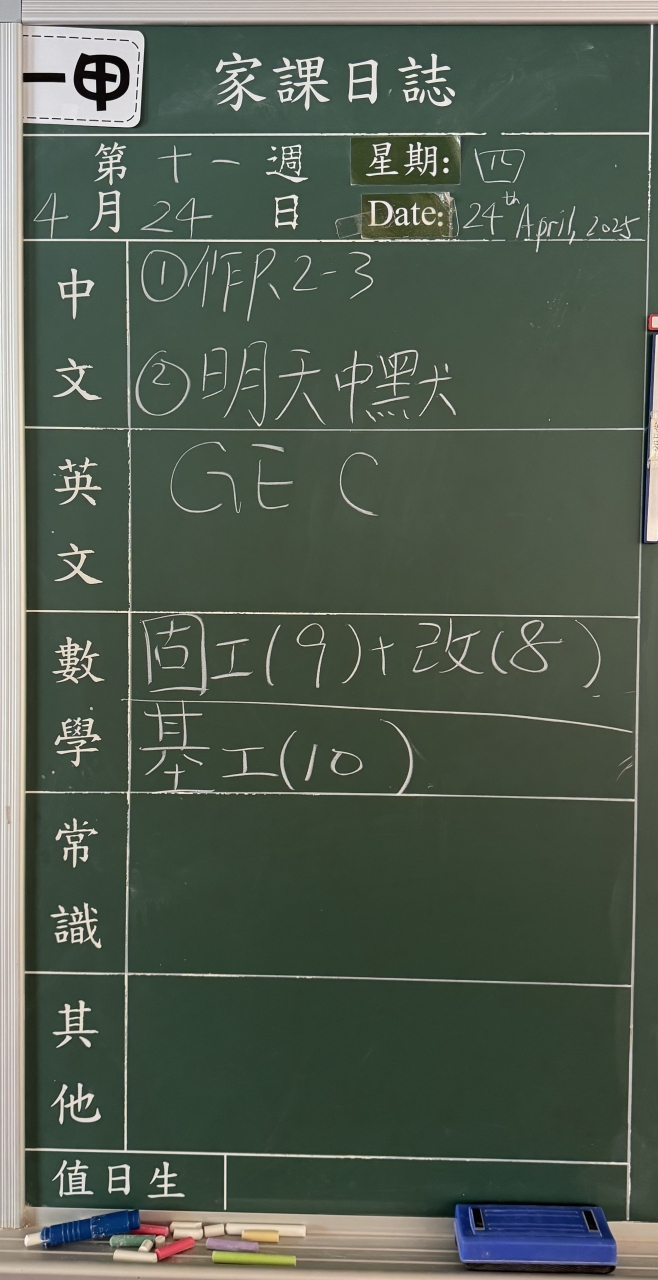 一甲
家課日誌
第十一週 星期: 四
4月24日 Date: 24th April, 2025
中文
①作尺2-3
②明天中默
英文
GE C
數學
固工(9)+改(8)
基工(10)
常識
其他
值日生